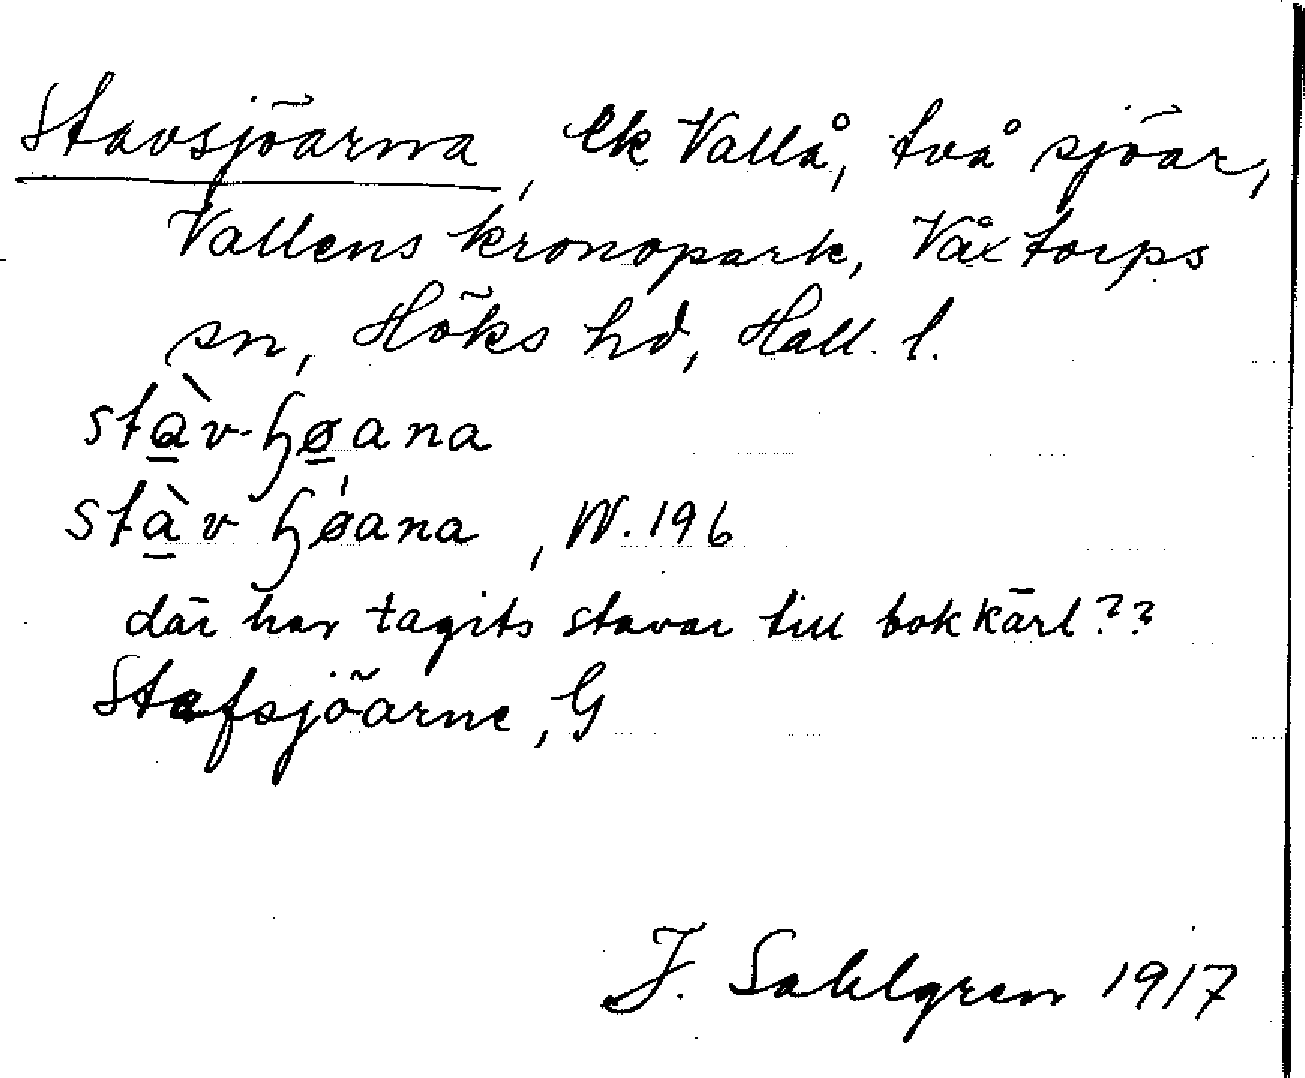 Stavsjöarna, ek Vallå, två sjöar,
Vallens kronopark, Våxtorps
sn, Höks hd, Hall. l.
stàv-ɧøana
stàv ɧøana, W. 196
där har tagits stavar till bokkärl??
Stafsjöarne, G
J. Sahlgren 1917